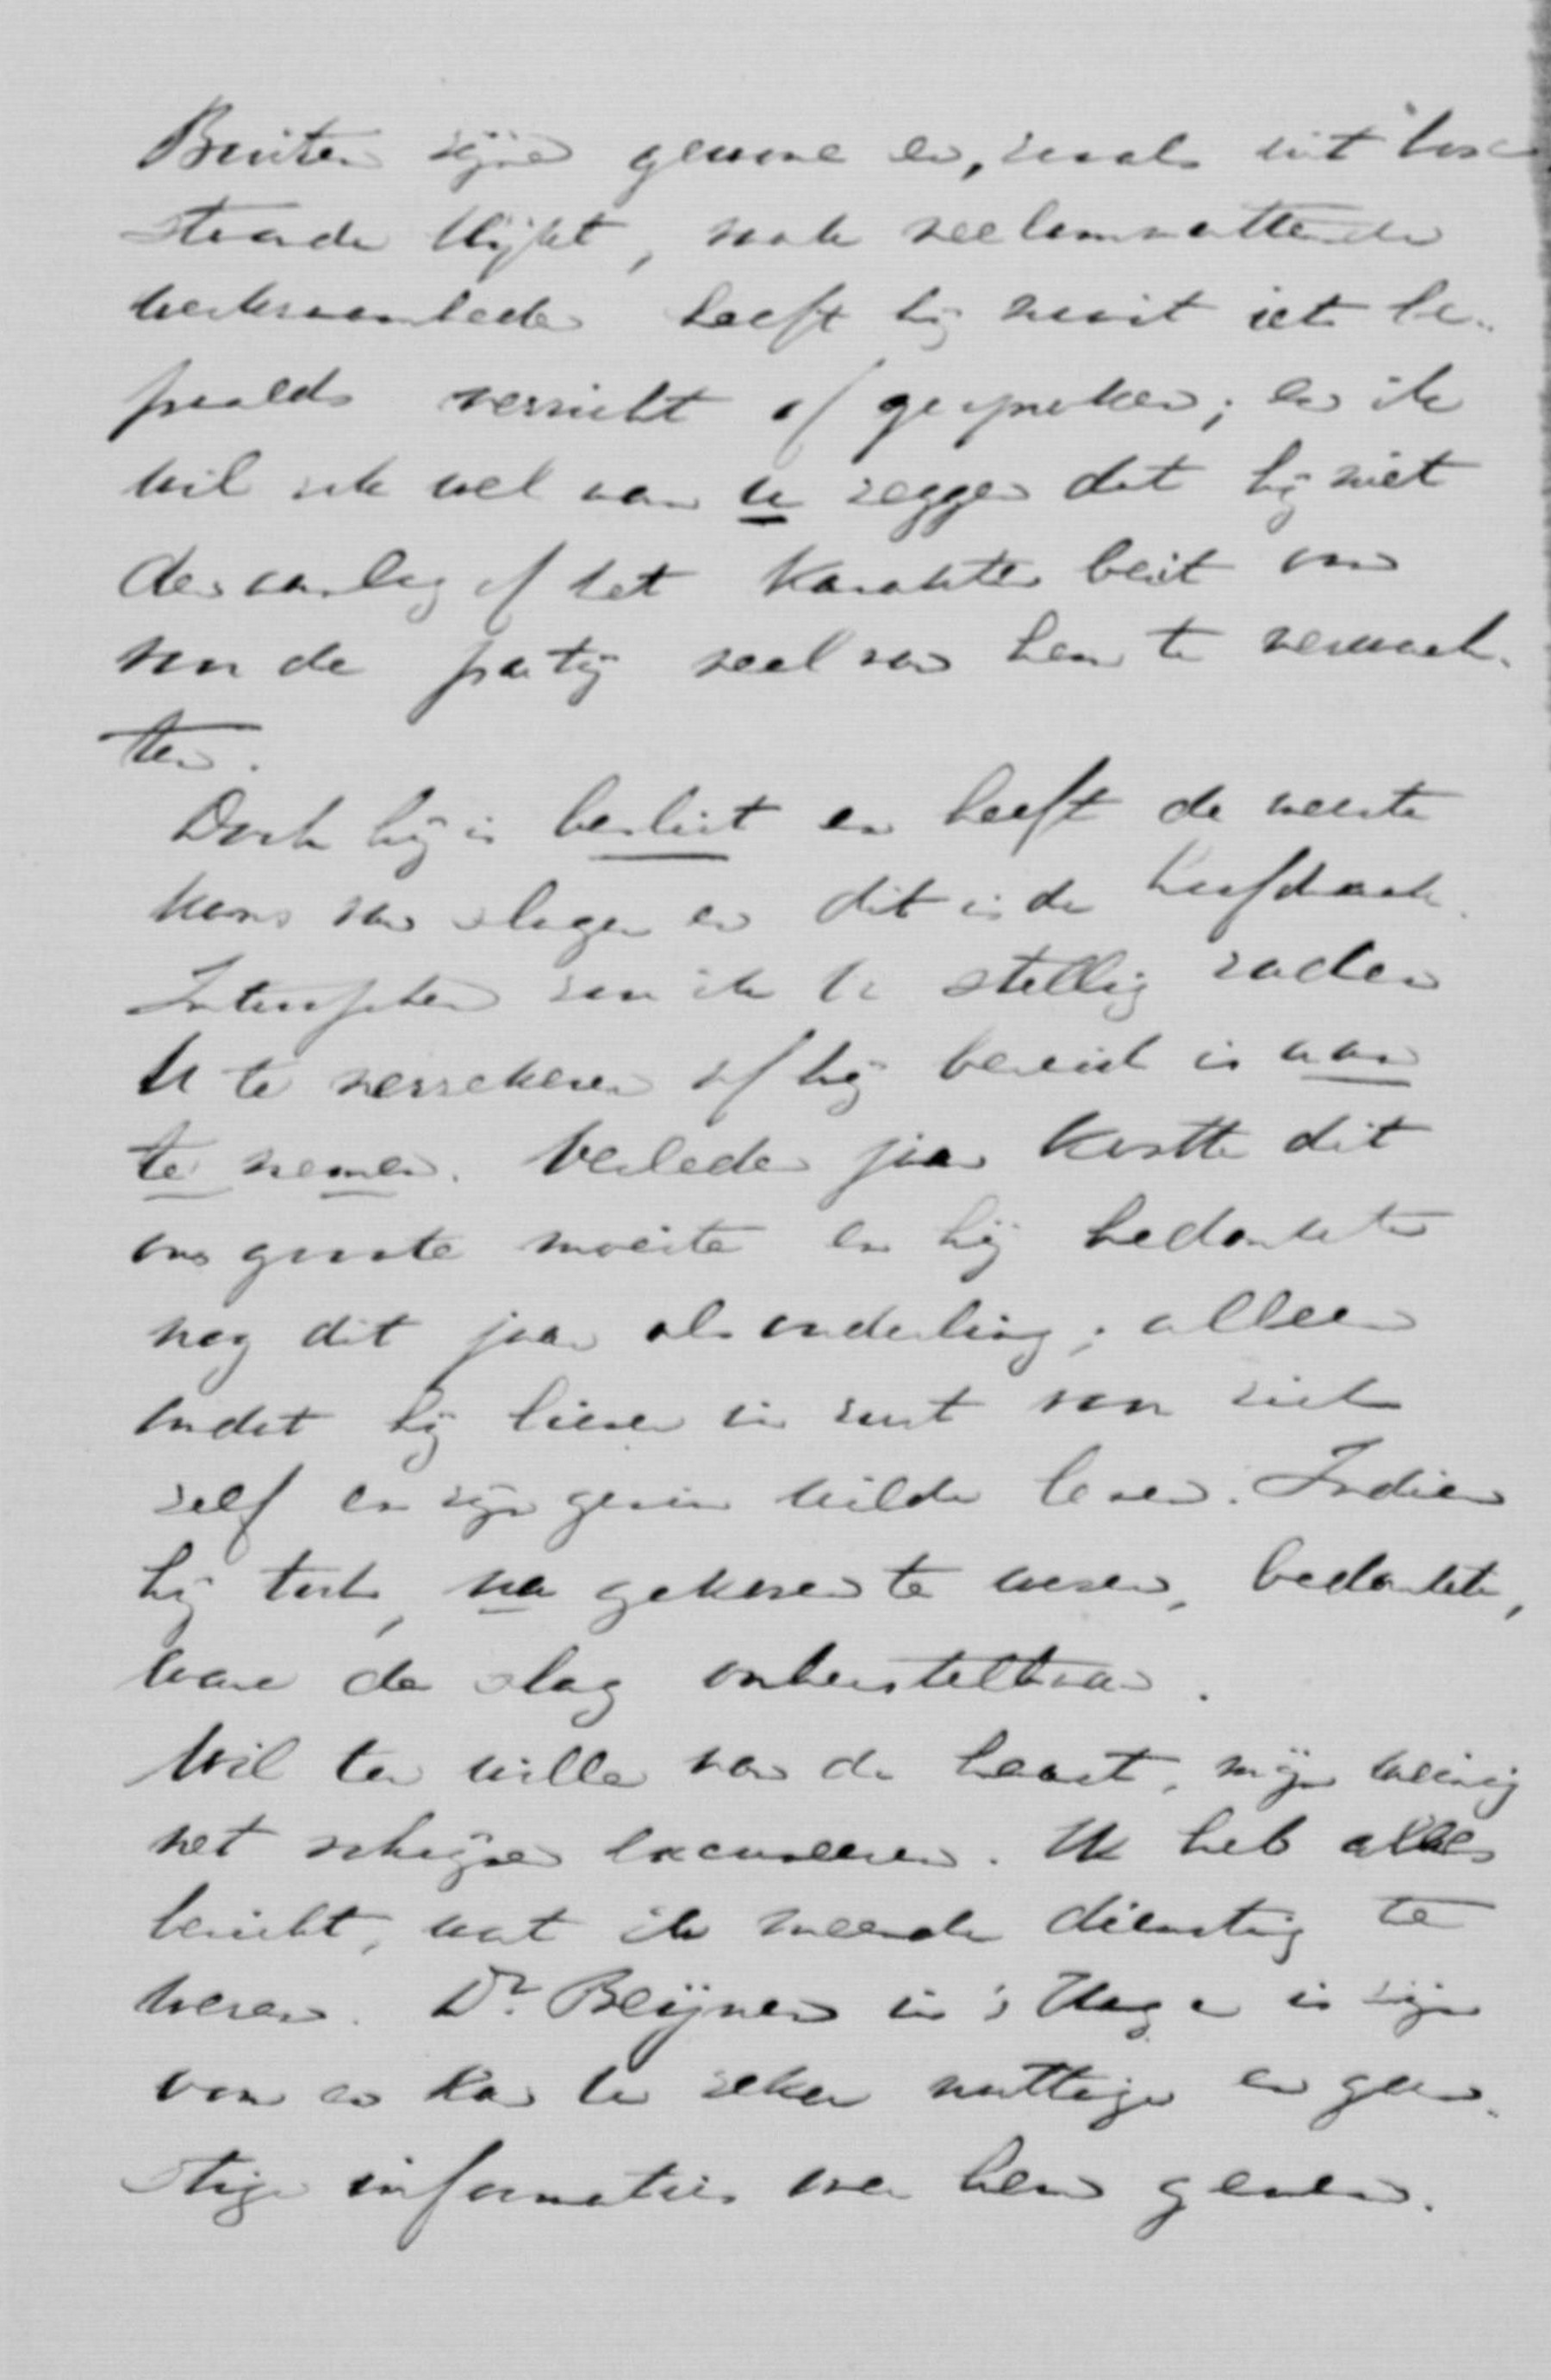 Buiten zijne gewone en, zooals uit boven
staande blijkt, ook veelomvattende
werkzaamheden heeft hij nooit iets be-
paalds verricht of gesproken; en ik
wil ook wel aan u zeggen dat hij niet
den aanleg of het karakter bezit om
voor de partij veel van hem te verwach-
ten.
Doch hij is beslist en heeft de meeste
kans van slagen en dit is de hoofdzaak.
Intusschen zou ik U stellig raden
U te verzekeren of hij bereid is aan
te nemen. Verleden jaar kostte dit
ons groote moeite en hij bedankte
nog dit jaar als ouderling; alleen
omdat hij liever in rust voor zich
zelf en zijn gezin wilde leven. Indien
hij toch, na gekozen te wezen, bedankte,
ware de slag onherstelbaar.
Wil ter wille van de haast, mijn weinig
net schrijven excuseeren. Ik heb alles
bericht, wat ik meende dienstig te
wezen. Dr. Beijnen in 's Hage is zijn
oom en kan U zeker nuttige en gun-
stige informaties over hem geven.